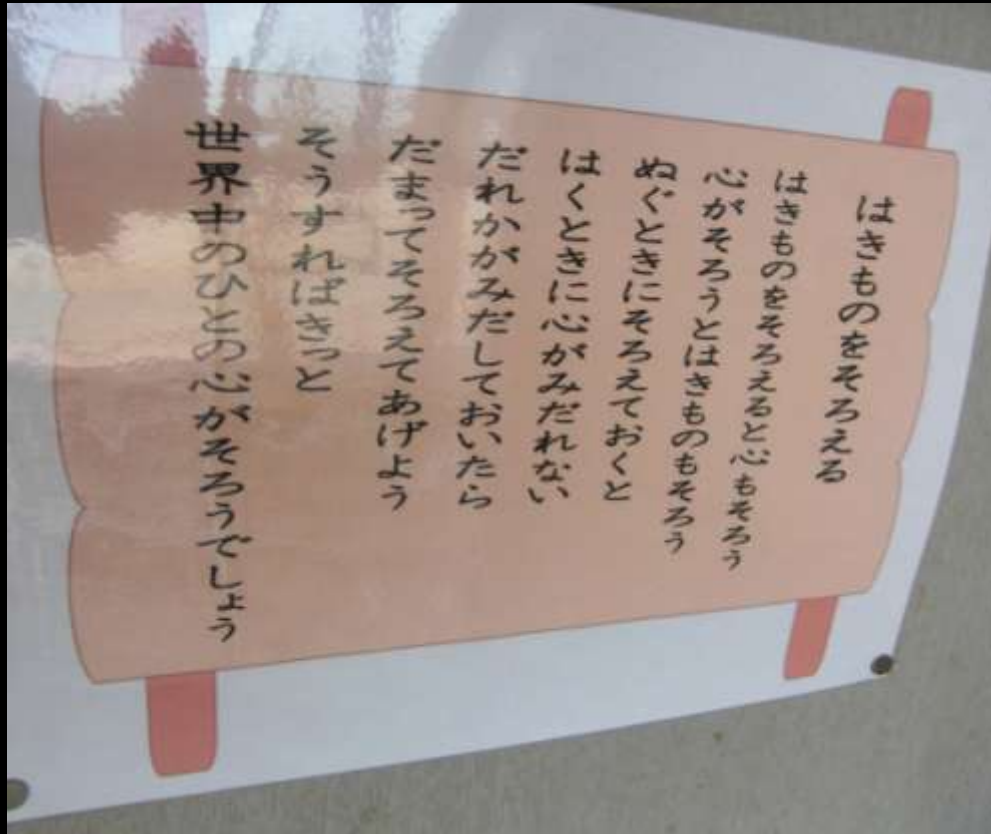 はきものをそろえる
はきものをそろえると心もそろう
心がそろうとはきものもそろう
ぬぐときにそろえておくと
はくときに心がみだれない
だれかがみだしておいたら
だまってそろえてあげよう
そうすればきっと
世界中のひとの心がそろうでしょう